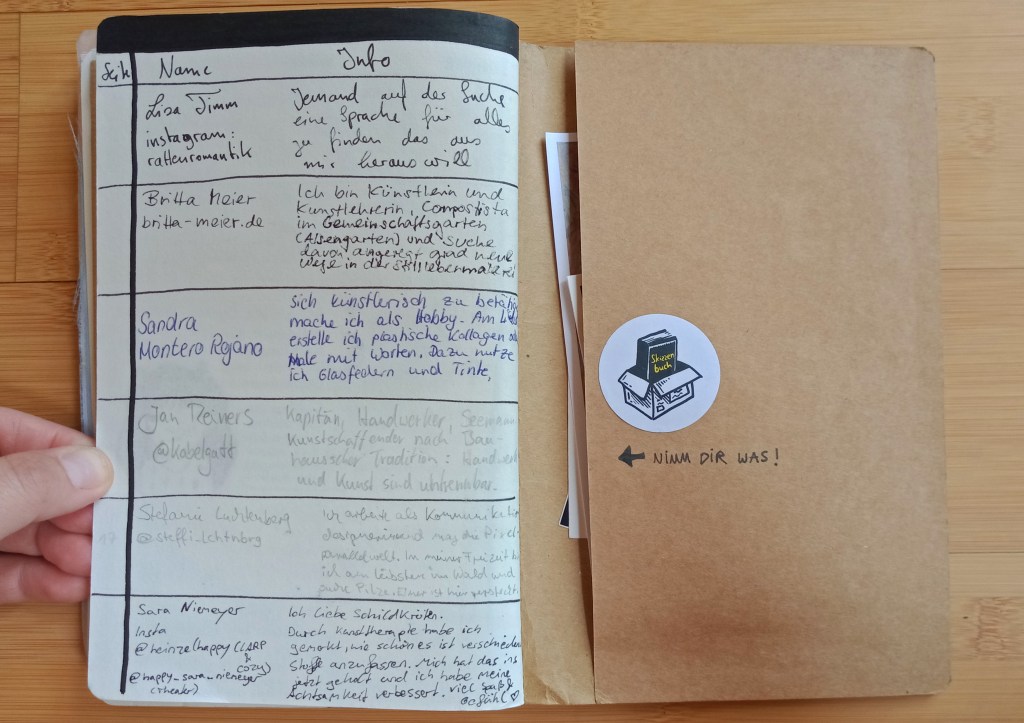 Seite Name Info
Lisa Timm
instagram:
rattenromantik
Jemand auf der Suche
eine Sprache für alles
zu finden das aus
mir heraus will
Britta Meier
britta-meier.de
Ich bin Künstlerin und
Kunstlehrerin, Compostista
im Gemeinschaftsgarten
(Alsengarten) und suche
davon angeregt grad neue
Wege in der Stilllebenmalerei
Sandra
Montero Rojano
Sich künstlerisch zu betätige
mache ich als Hobby. Am
erstelle ich plastische Kollagen
Male mit Worten. Dazu nutze
ich Glasfedern und Tinte,
Jan Reiners
@kabelgatt
Kapitän, Handwerker, Seemann
Kunstschaffender nach Bau-
hausscher Tradition: Handwerk
und Kunst sind untrennbar.
17
Stefanie Luchtenberg
@steffi_lchtnbrg
Ich arbeite als Kommunikation
designerin und mag die Pixel-
parallelwelt. In meiner Freizeit
ich am liebsten im Wald und
Pilze. Einer ist hier versteckt
Sara Niemeyer
Insta
@heinzelhappy (LARP
& cozy)
@happy_sara_niemeyer
(theater)
Ich liebe Schildkröten.
Durch Kunsttherapie habe ich
gemerkt, wie schön es ist verschieden
Stoffe anzufassen. Mich hat das ins
jetzt geholt und ich habe meine
Achtsamkeit verbessert. viel Spaß &
Gefühl ♡
Skizzen
buch
← NIMM DIR WAS!